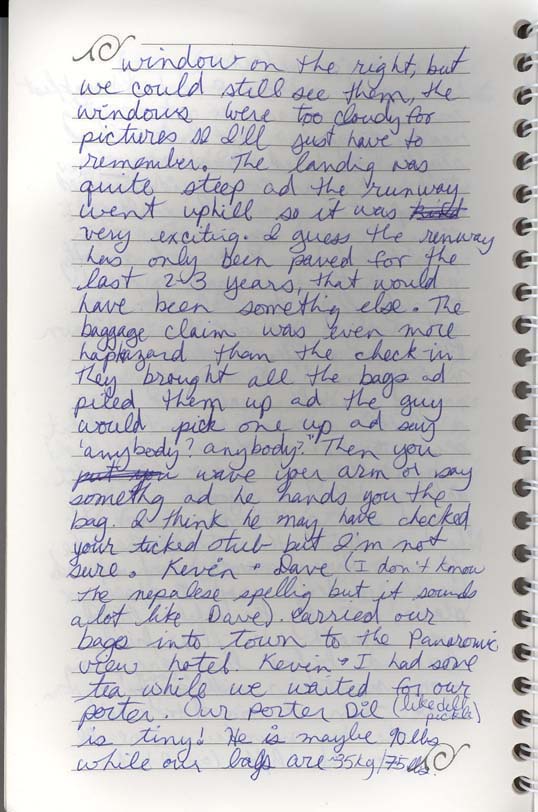 window on the right, but
we could still see them, the
windows were too cloudy for
pictures so I'll just have to
remember. The landig was
quite steep ad the runway
went uphill so it was
very exciting. I guess the runway
has only been paved for the
last 2-3 years, that would
have been somethig else. The
baggage claim was even more
haphazard than the check-in
They brought all the bags ad
piled them up ad the guy
would pick one up ad say
'anybody? anybody?" Then you
put you wave yper arm or say
somethg ad he hands you the
bag. I think he may have checked
your ticked stub but I'm not
sure. Kevin + Dave (I don't know
the nepalese spellig but it sounds
alot like Dave). carried our
bags into town to the Panoromic
view hotel. Kevin + I had some
tea while we waited for our
porter. Our porter Dil (like dill pickle)
is tiny! He is maybe 90lbs
while our bags are ~35kg/75lbs.